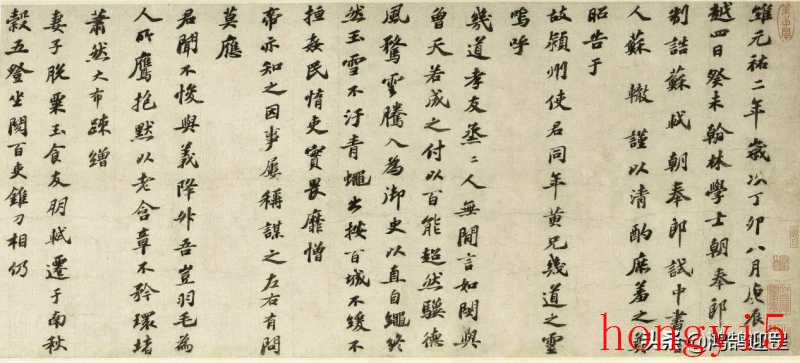 維元祐二年歲次丁卯八月庚辰
越四日癸未翰林學士朝奉郎
制誥蘇軾朝奉郎試中書
人蘇轍謹以清酌庶羞之奠
昭告于
故潁州使君同年黃兄幾道之靈
嗚呼
幾道孝友烝二人無閒言如閔與
曾天若成之付以百能超然驥德
風騖雲騰入為御史以直自繩終
然玉雪不汙青蠅出按百城不緩不
搄姦民惰吏實畏靡憎
帝亦知之因事屢稱謀之左右有問
莫應
君聞不悛與義降升吾豈羽毛為
人所鷹抱默以老含章不矜環堵
蕭然大布疎繒
妻子脫粟玉食友朋軾遷于南秋
穀五登坐閱百吏錐刀相仍
hongyi5